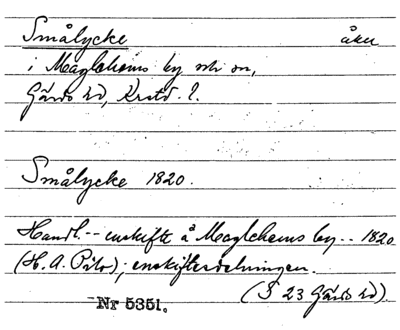 Smålycke åker
i Maglehems by och sn,
Gärds hd, Krstd. l.
Smålycke 1820.
Handl. -- enskifte å Maglehems by -- 1820
(H. A. ); enskiftesdelningen.
(§ 23 Gärds hd).
Nr 5351.